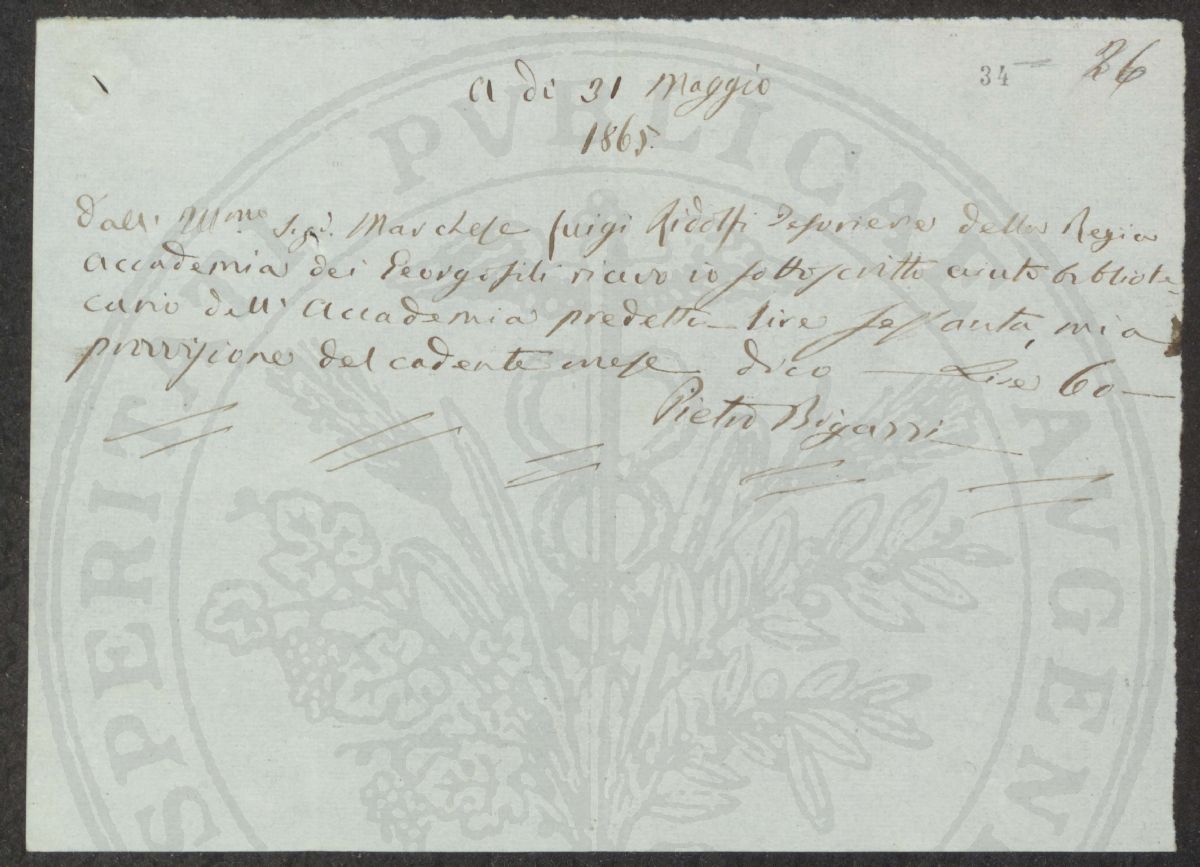 34 26
A di 31 Maggio
1865.
Dall' Illmo Sigr. Marchese Luigi Ridolfi Tesoriere della Regia
Accademia dei Georgofili ricevo io sottoscritto aiuto bibliote-
cario dell' Accademia predetta lire sessanta, mia
provvisione del cadente mese dico Lire 60
Pietro Bigazzi
PROSPERITATI PVBLICAE AVGENDAE